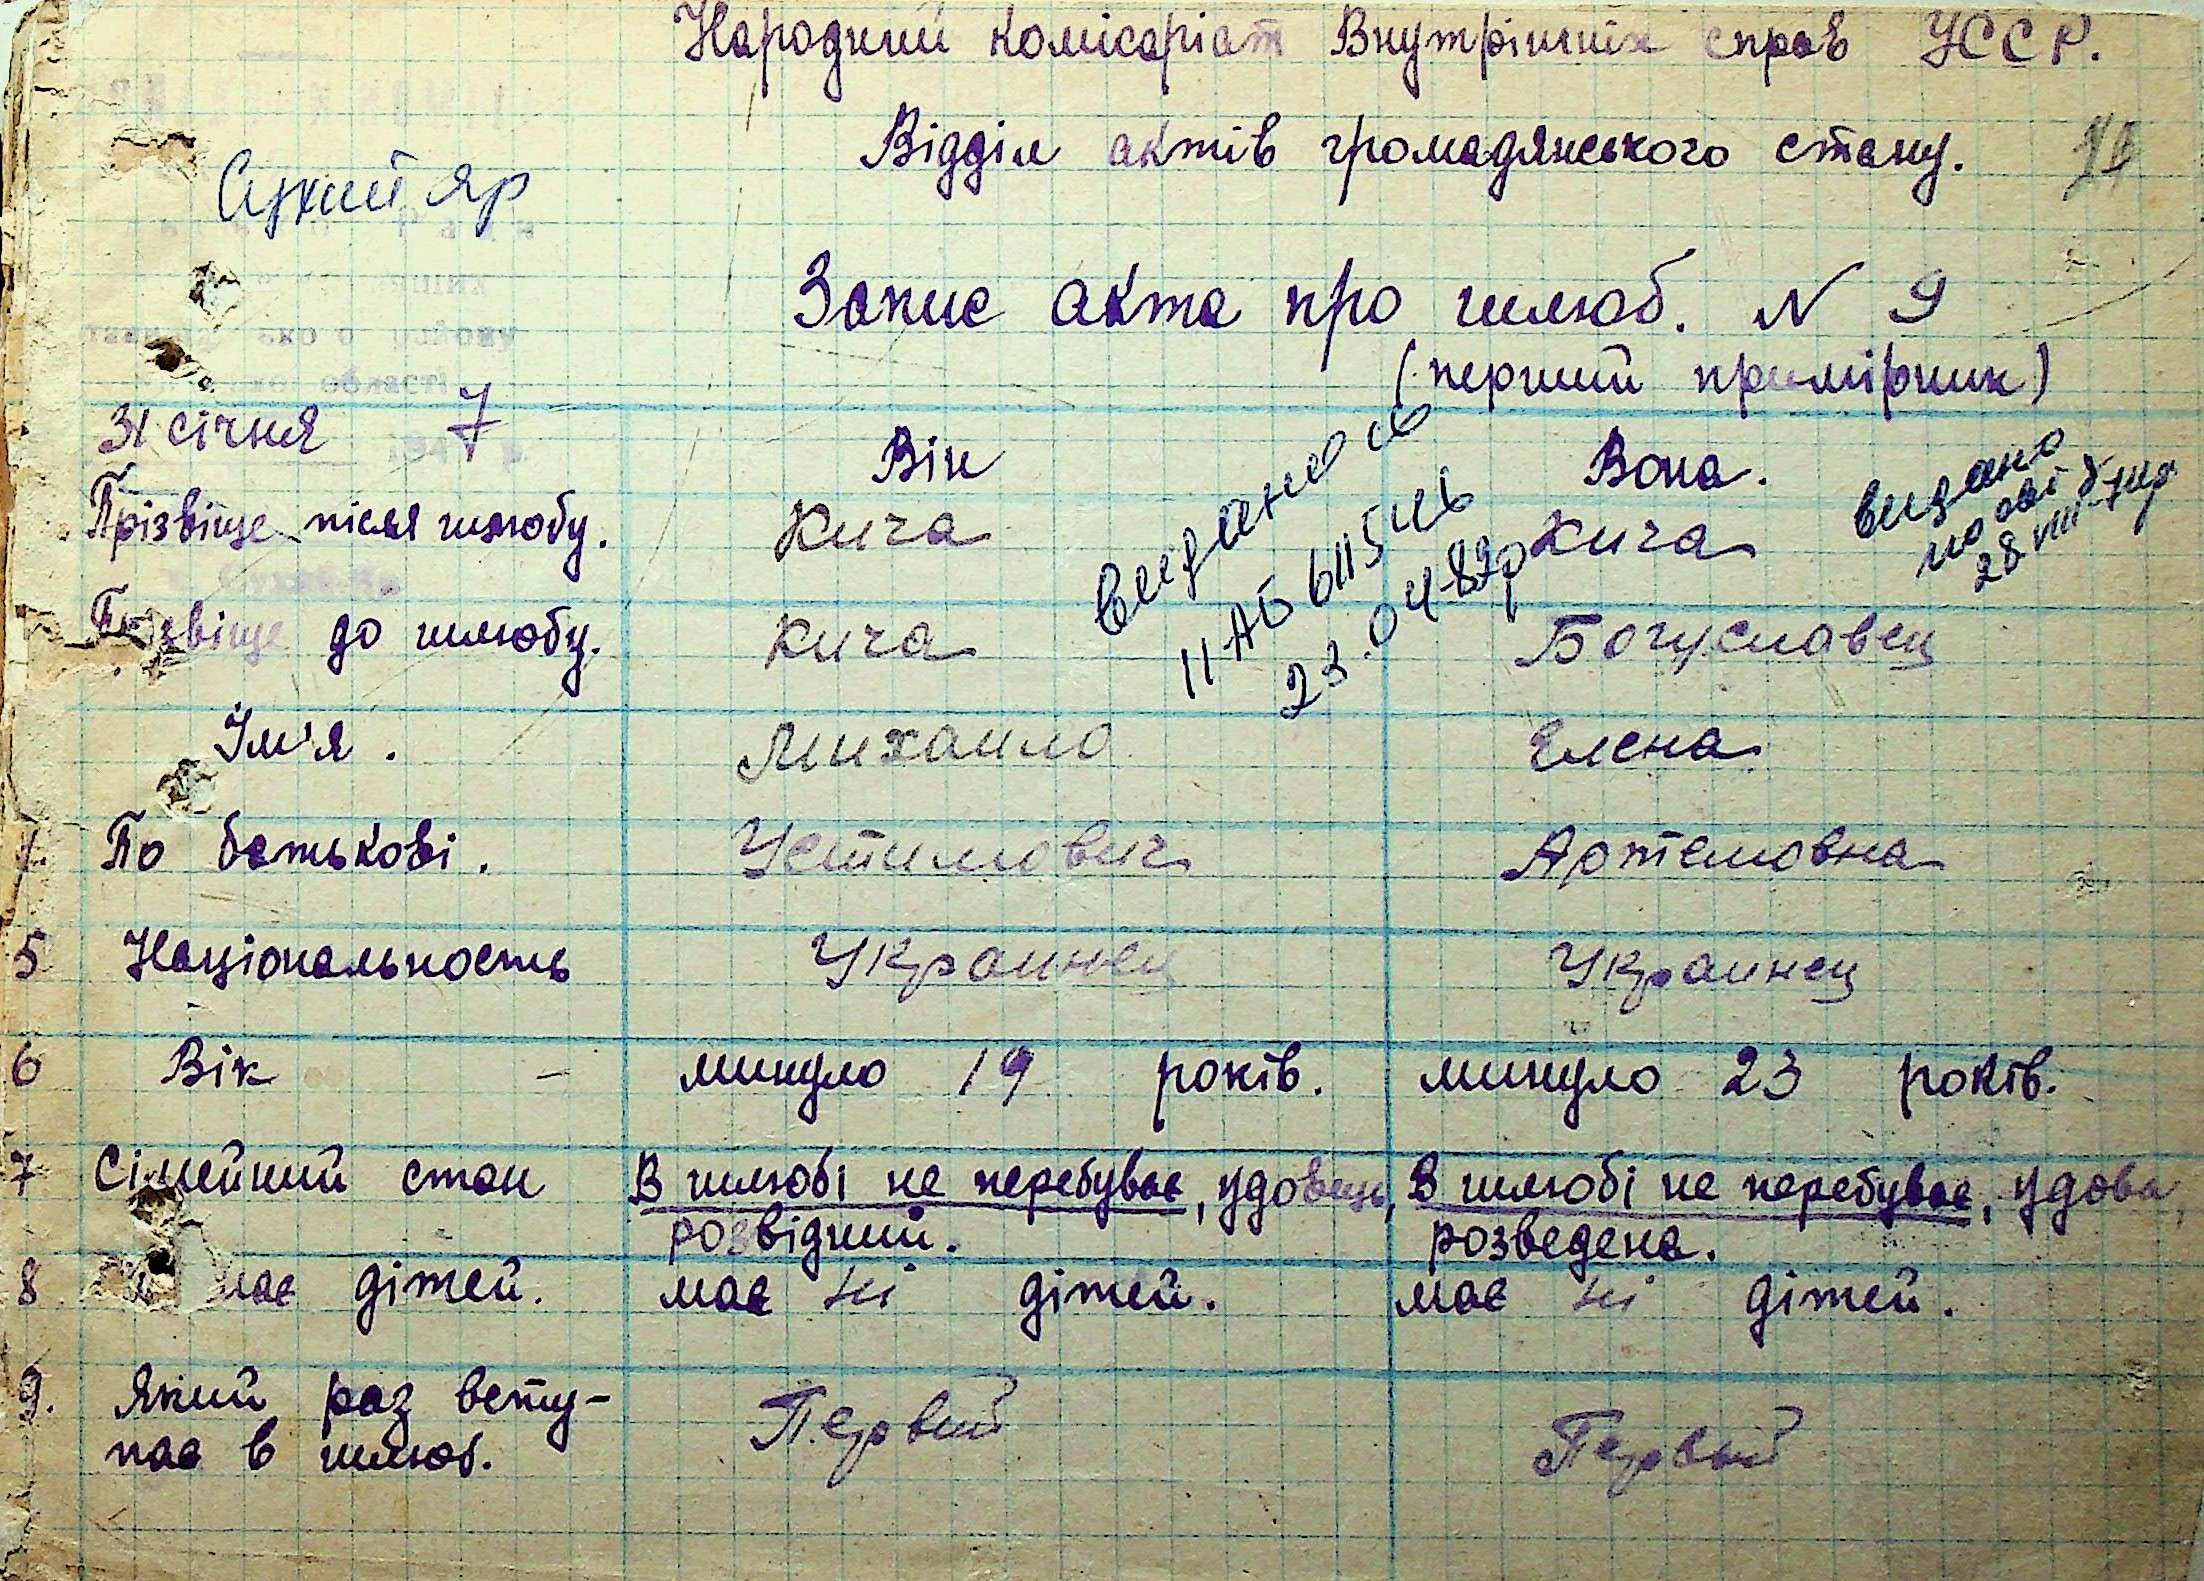 Народний комісаріат Внутрішніх справ УССР.
Відділ актів громадянського стану.
Сухий яр
Запис акта про шлюб. N 9
(перший примірник)
31 січня 7
194 р.
Він Вона.
Прізвіще після шлюбу. Кича Кича
видано
II-АБ 611541
23.04.82р
видано
28.VIII
Прізвіще до шлюбу. Кича Богуславец
Їм'я. Михаило Елена
По батькові. Устимович Артемовна
5 Національность Украинец Украинец
6 Вік – минуло 19 років. минуло 23 років.
7 Сімейний стан В шлюбі не перебуває, удовець, В шлюбі не перебуває, удова,
розвідний. розведена.
8 має дітей. має ні дітей. має ні дітей.
9. Який раз всту-
пає в шлюб. Первий Первый